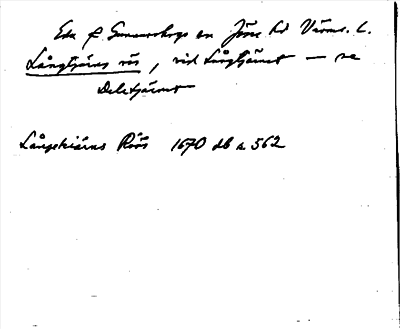 Eda f Gunnarskogs sn Jösse hd Värml. L.
Långtjärns rös, vid Långtjärnet — se
Deletjärnet
Långekiärns Röös 1670 db s 562